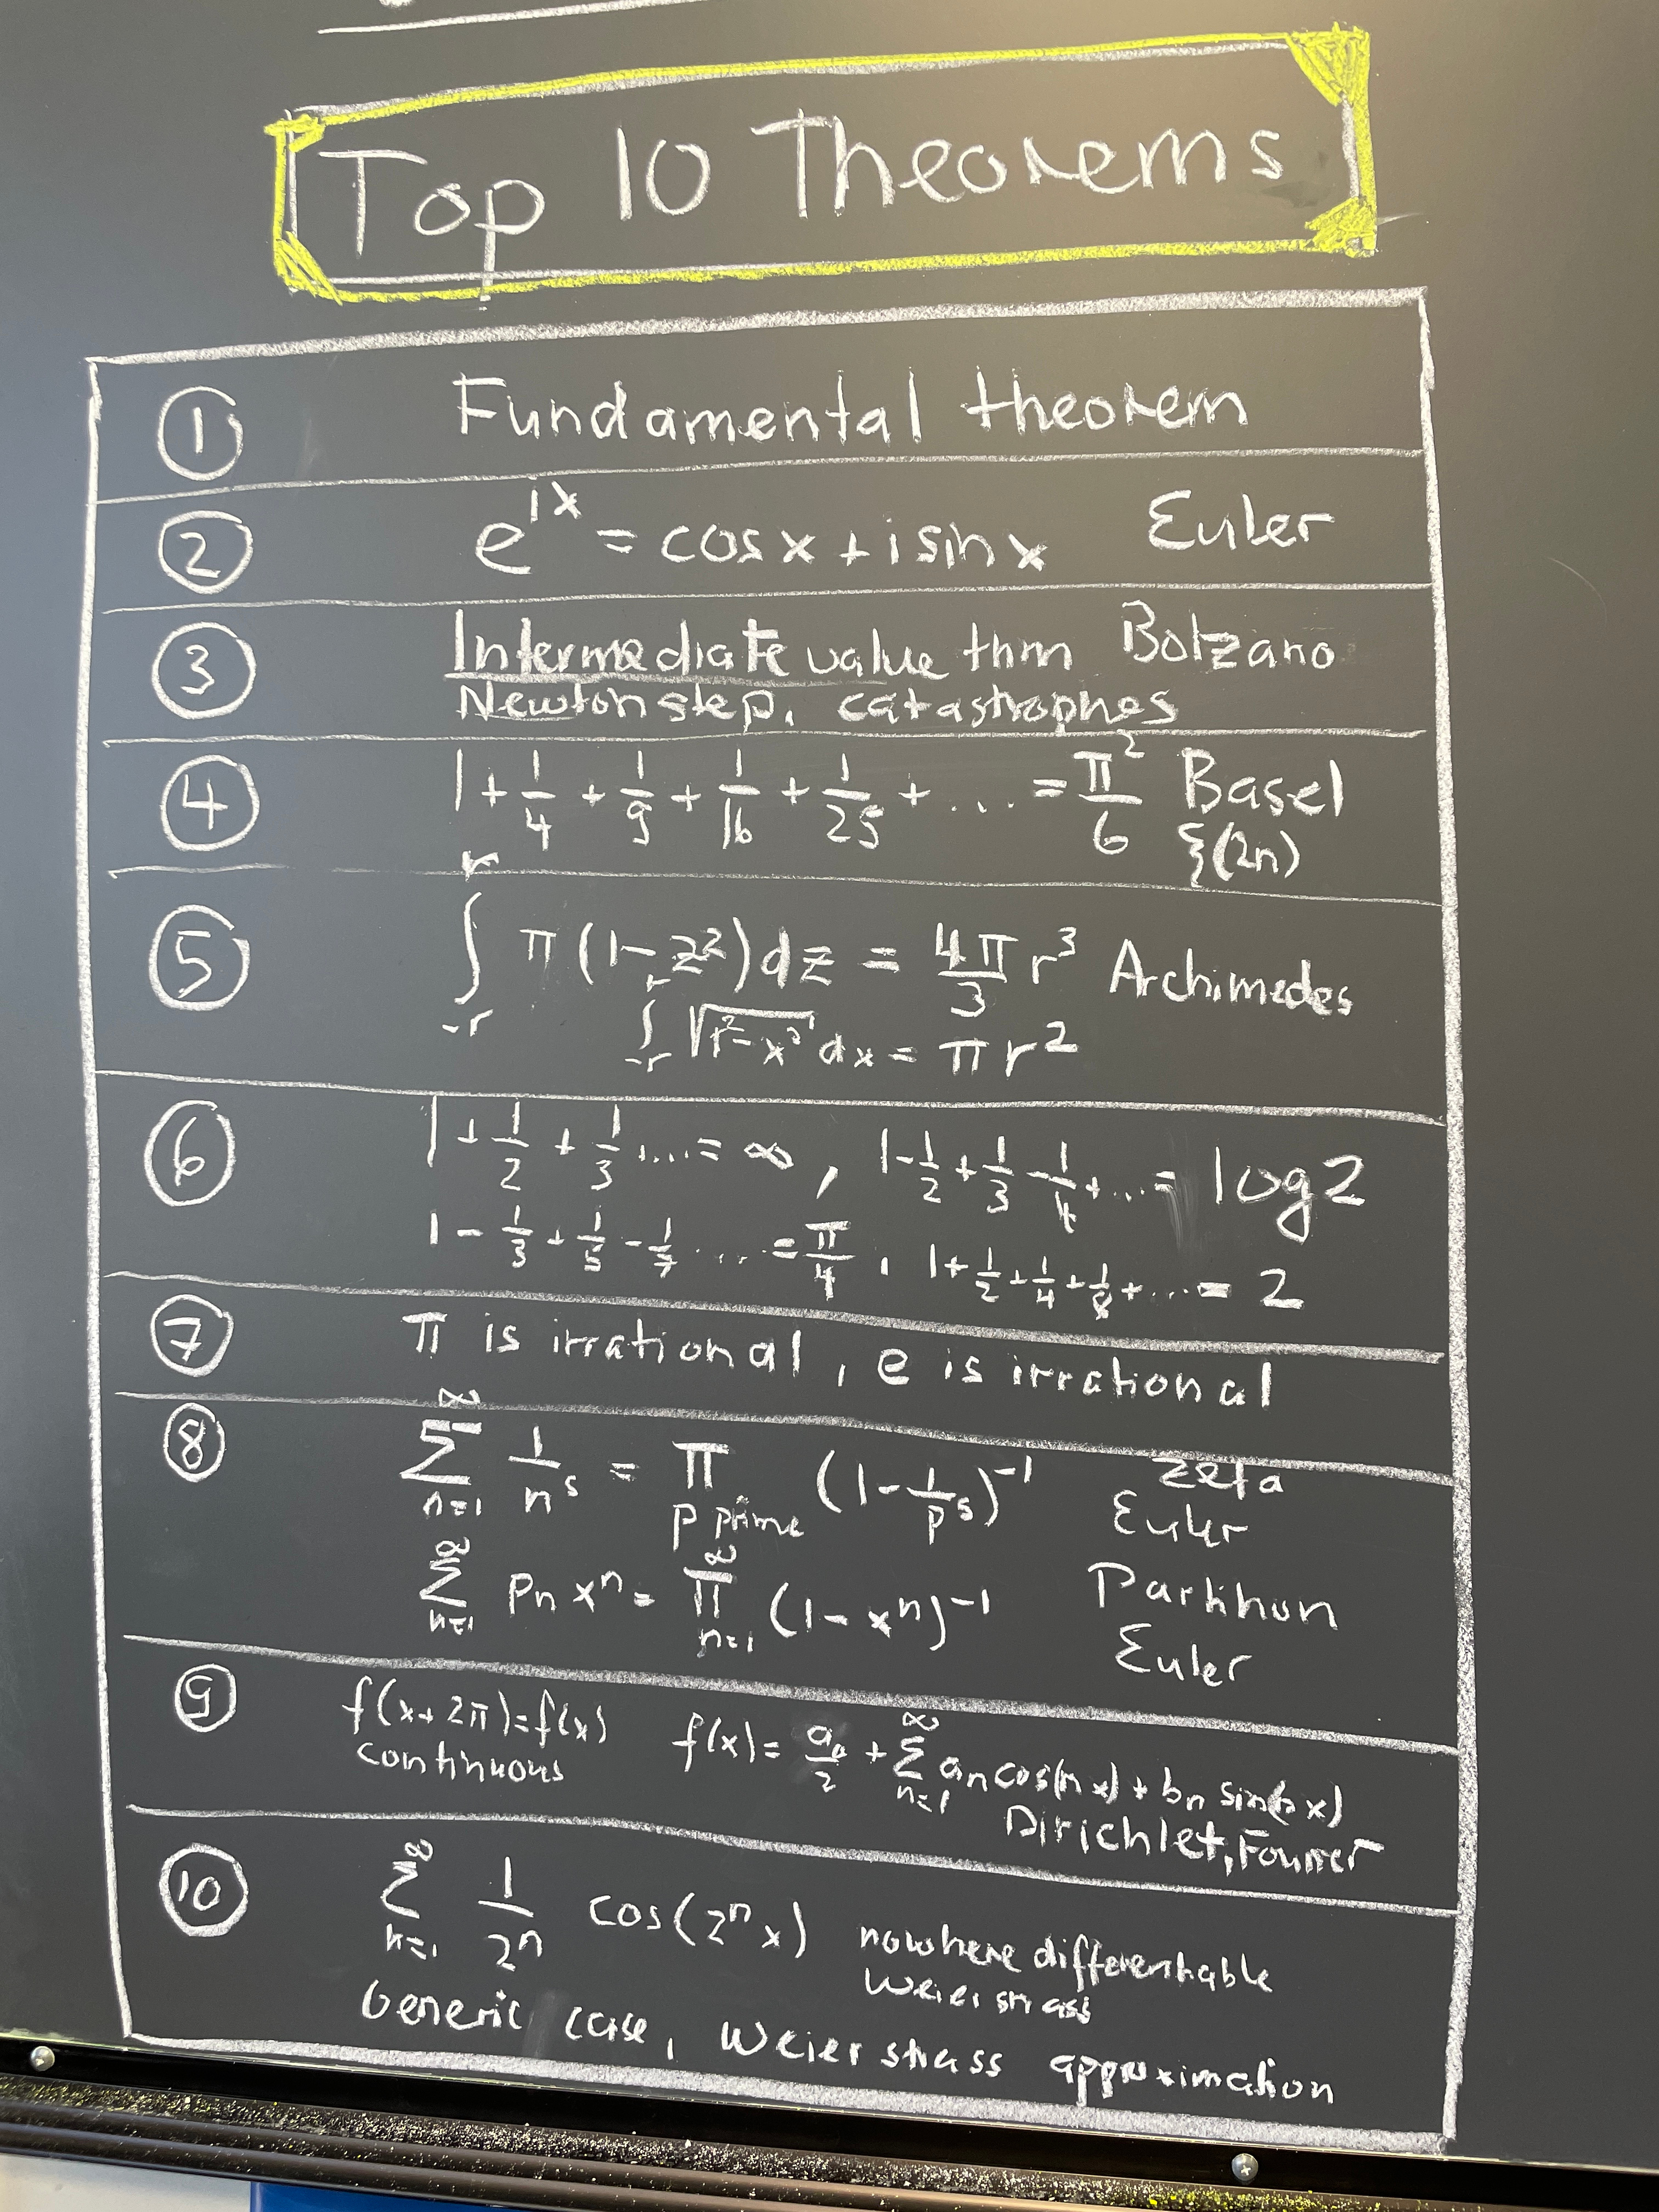 Top 10 Theorems
① Fundamental theorem
② e^{ix} = cos x + i sin x Euler
③ Intermediate value thm Bolzano
Newton step, catastrophes
④ 1 + 1/4 + 1/9 + 1/16 + 1/25 + ... = π²/6 Basel
ζ(2n)
⑤ ∫_{-r}^{r} π(1-z²)dz = 4π/3 r³ Archimedes
∫_{-r}^{r} √(r²-x²) dx = πr²
⑥ 1 + 1/2 + 1/3 + .... = ∞, 1 - 1/2 + 1/3 - 1/4 + ... = log 2
1 - 1/3 + 1/5 - 1/7 .... = π/4, 1 + 1/2 + 1/4 + 1/8 + ... = 2
⑦ π is irrational, e is irrational
⑧ Σ_{n=1}^{∞} 1/n^s = Π_{p prime} (1 - 1/p^s)^{-1} Zeta
Euler
Σ_{n=1}^{∞} p_n x^n = Π_{n=1}^{∞} (1 - x^n)^{-1} Partition
Euler
⑨ f(x+2π)=f(x) f(x) = a_0/2 + Σ_{n=1}^{∞} a_n cos(nx) + b_n sin(nx)
continuous
Dirichlet, Fourier
⑩ Σ_{n=1}^{∞} 1/2^n cos(2^n x) nowhere differentiable
Weierstrass
Generic case, Weierstrass approximation